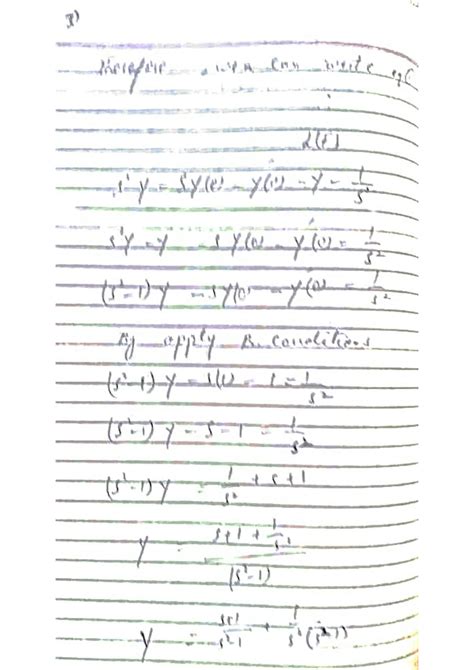 3)
Therefore, we can write eq(
L(t)
s² Y - SY(0) - Y(0) - Y = 1/s²
s²Y - Y - SY(0) - Y(0) = 1/s²
(s²-1) Y - SY(0) - Y(0) = 1/s²
By apply B. conditions
(s²-1) Y - s(1) - 1 = 1/s²
(s²-1) Y - s - 1 = 1/s²
(s²-1) Y = 1/s² + s + 1
Y = (s+1 + 1/s²)/(s²-1)
Y = (s+1)/(s²-1) + 1/(s²(s²-1))